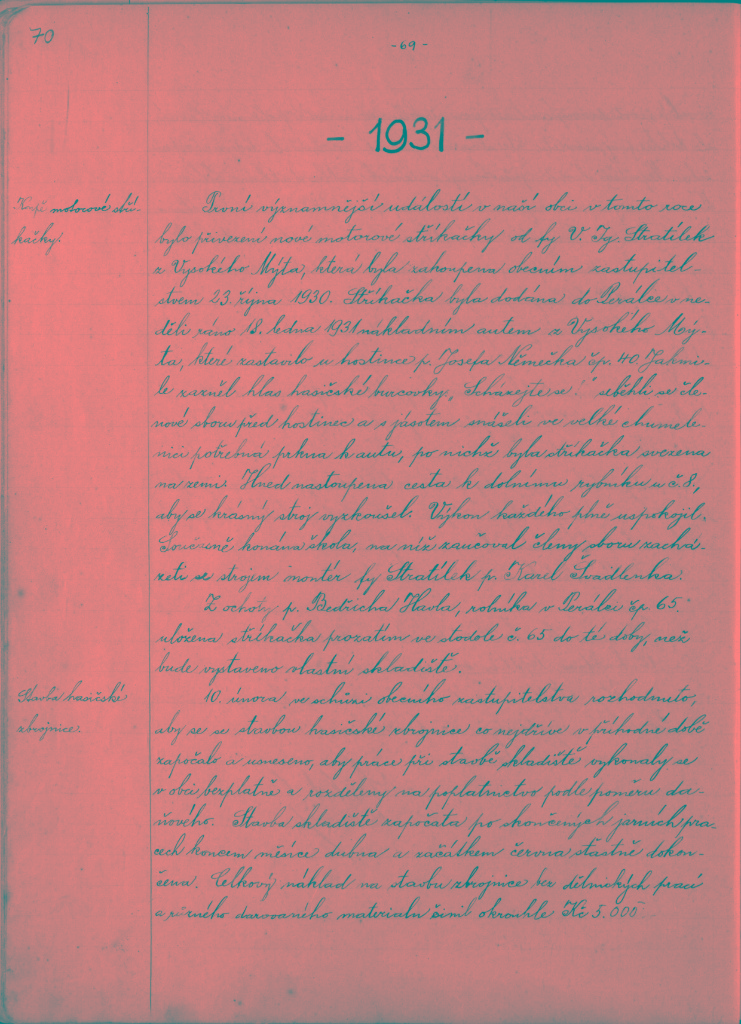 70
- 69 -
- 1931 -
Koupě motorové stří-
kačky.
První významnější událostí v naší obci v tomto roce
bylo přivezení nové motorové stříkačky od fy V. Ig. Stratílek
z Vysokého Mýta, která byla zakoupena obecním zastupitel-
stvem 23. října 1930. Stříkačka byla dodána do Perálce v ne-
děli ráno 18. ledna 1931 nákladním autem z Vysokého Mý-
ta, které zastavilo u hostince p. Josefa Němečka čp. 40. Jakmi-
le zazněl hlas hasičské burcovky „Scházejte se!" seběhli se čle-
nové sboru před hostinec a s jásotem snášeli ve velké chumele-
nici potřebná prkna k autu, po nichž byla stříkačka svezena
na zemi. Hned nastoupena cesta k dolnímu rybníku u č. 8.,
aby se krásný stroj vyzkoušel. Výkon každého plně uspokojil.
Současně konána škola, na níž zaučoval členy sboru zachá-
zeti se strojem montér fy Stratílek p. Karel Švadlenka.
Z ochoty p. Bedřicha Havla, rolníka v Perálci čp. 65.
uložena stříkačka prozatím ve stodole č. 65 do té doby, než
bude vystaveno vlastní skladiště.
Stavba hasičské
zbrojnice.
10. února ve schůzi obecního zastupitelstva rozhodnuto,
aby se se stavbou hasičské zbrojnice co nejdříve v příhodné době
započalo a usneseno, aby práce při stavbě skladiště vykonaly se
v obci bezplatně a rozděleny na poplatnictvo podle poměru da-
ňového. Stavba skladiště započata po skončených jarních pra-
cech koncem měsíce dubna a začátkem června šťastně dokon-
čena. Celkový náklad na stavbu zbrojnice bez dělnických prací
a různého darovaného materialu činil okrouhle Kč 5.000